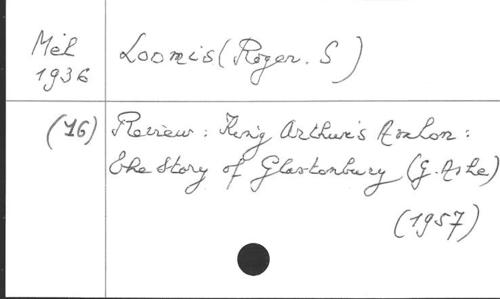 Mél
1936
Loomis (Roger. S)
(16)
Review: King Arthur's Avalon:
the Story of Glastonbury (G. Ashe)
(1957)